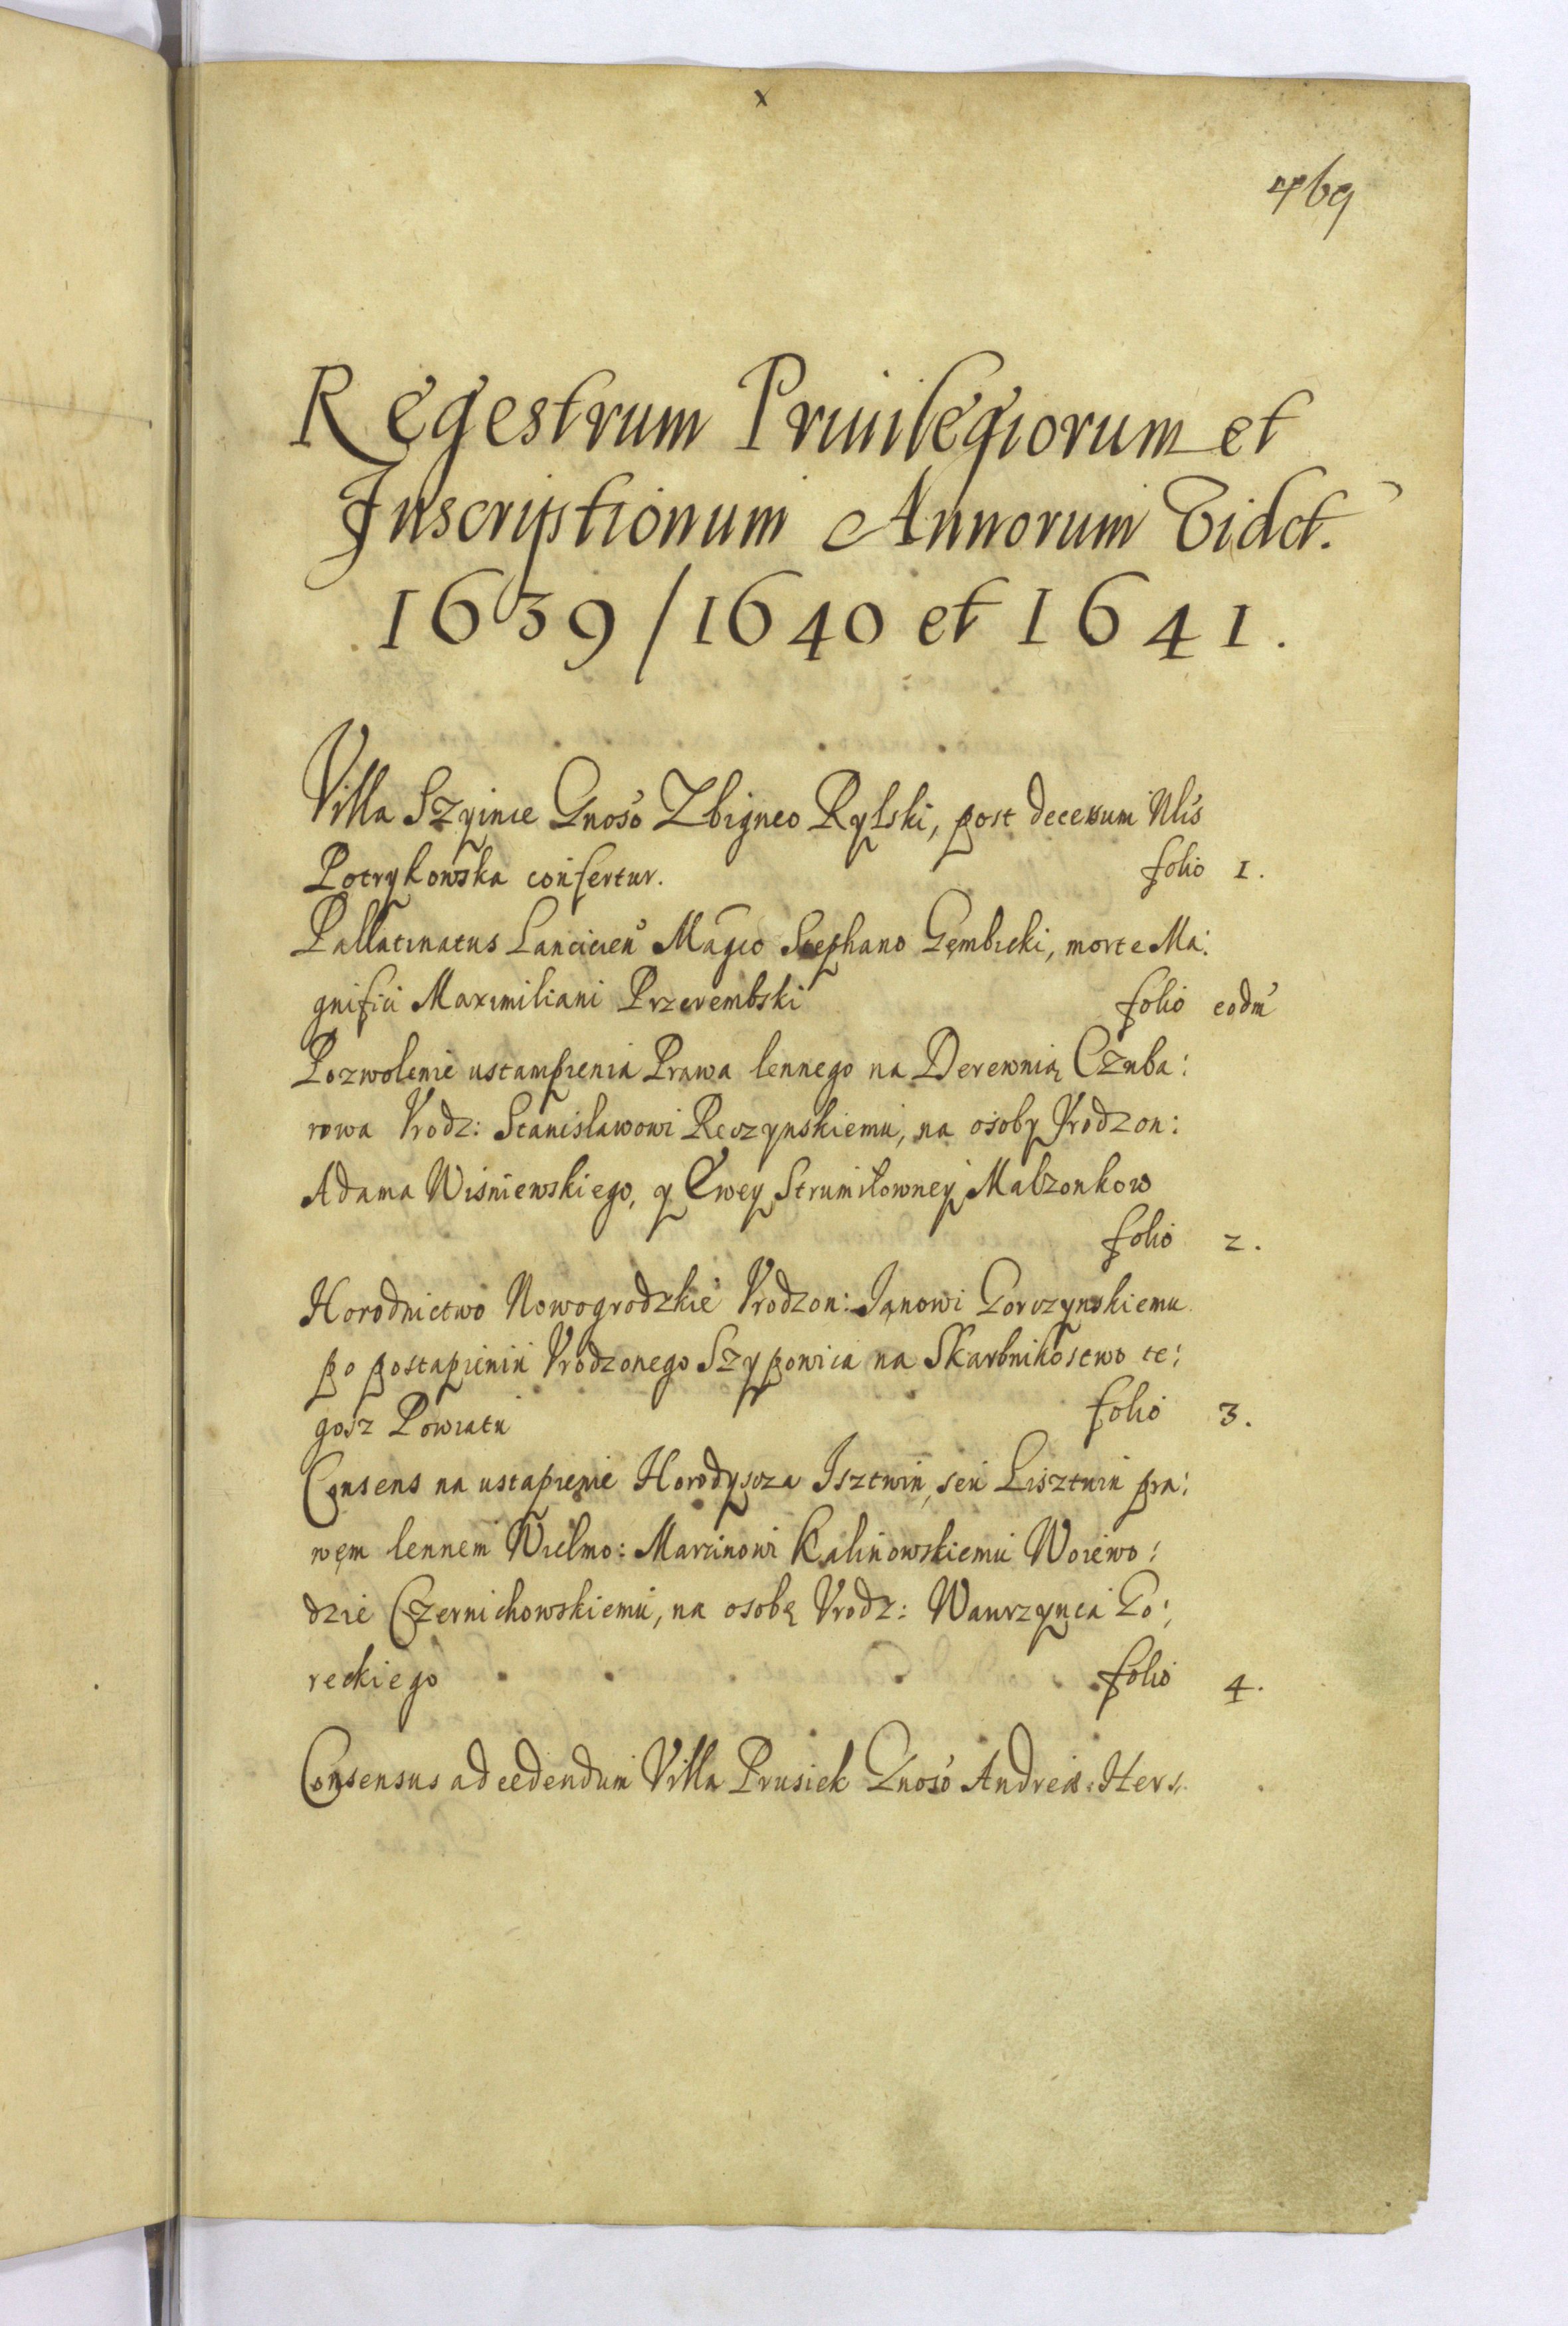 x
469
Regestrum Priuilegiorum et
Inscriptionum Annorum Vidct.
1639/1640 et 1641.
Villa Szyince Gnoso Zbigneo Rylski, post decessum Nlis
Potrykowska confertur. folio 1.
Pallatinatus Lancicien Magco Stephano Gembicki, morte Ma:
gnifici Maximiliani Przerembski folio eodm
Pozwolenie ustampienia Prawa lennego na Derewnią Czuba:
rowa Vrodz: Stanisławowi Reczynskiemu, na osoby Vrodzon:
Adama Wisniewskiego, y Ewey Strumiłowney Malzonkow
folio 2.
Horodnictwo Nowogrodzkie Vrodzon: Janowi Gorczynskiemu
po postąpieniu Vrodzonego Szypowica na Skarbnikostwo te:
gosz Powiatu folio 3.
Consens na ustąpienie Horodyscza Isztwin, seu Lisztwin pra:
wem lennem Wielmo: Marcinowi Kalinowskiemu Woiewo:
dzie Czernichowskiemu, na osobę Vrodz: Wawrzynca Go:
reckiego folio 4.
Consensus ad cedendum Villa Prusiek Gnoso Andreæ Hers